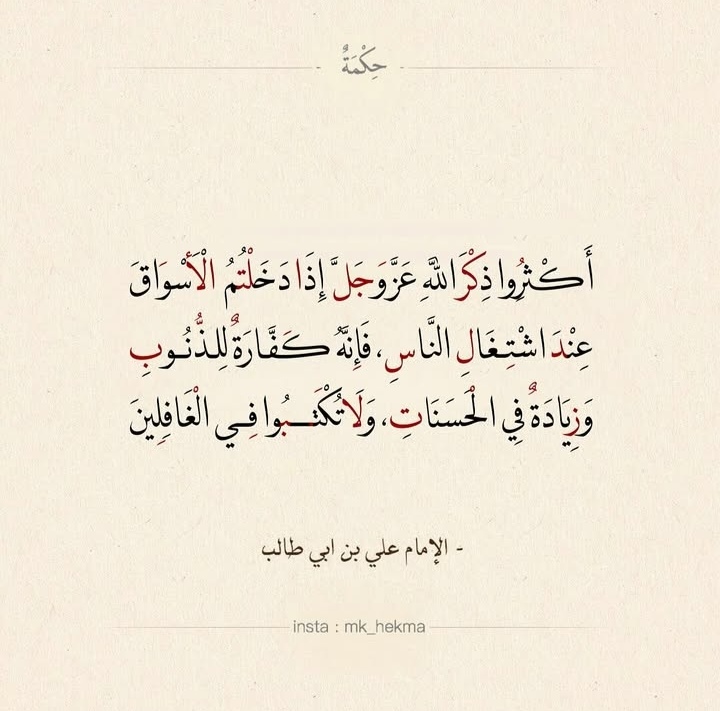 حِكْمَةٌ
أَكْثِرُوا ذِكْرَ اللَّهِ عَزَّوَجَلَّ إِذَا دَخَلْتُمُ الْأَسْوَاقَ
عِنْدَ اشْتِغَالِ النَّاسِ، فَإِنَّهُ كَفَّارَةٌ لِلذُّنُوبِ
وَزِيَادَةٌ فِي الْحَسَنَاتِ، وَلَا تُكْتَبُوا فِي الْغَافِلِينَ
- الإمام علي بن ابي طالب
insta : mk_hekma